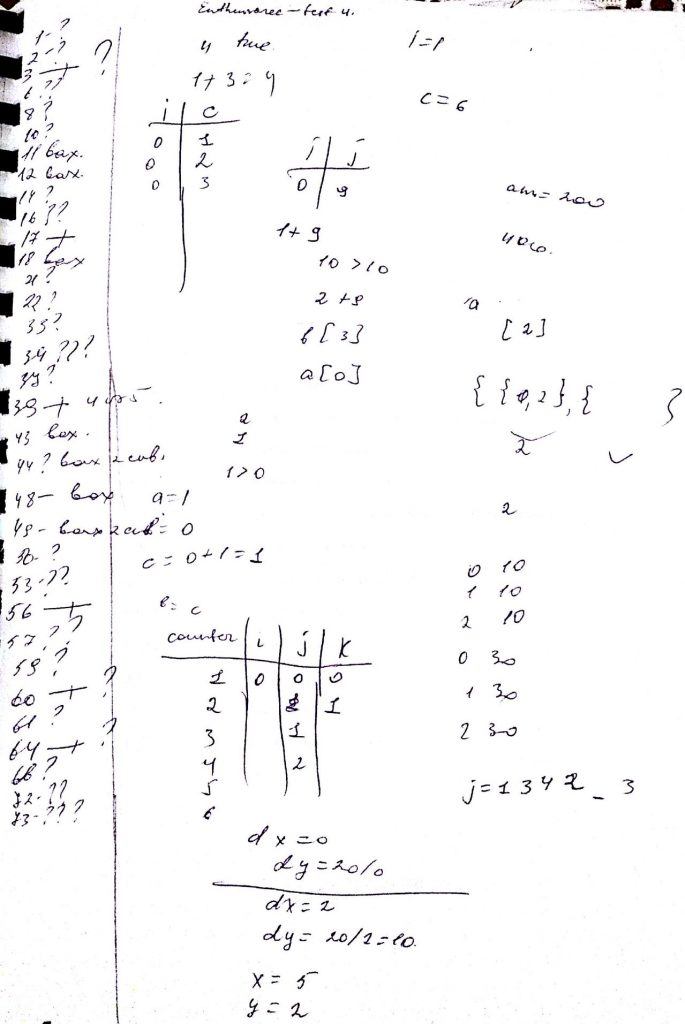 test 4.
1-?
2-?
3 + ?
6??
8?
10?
11 вах.
12 вах.
14?
16??
17 +
18 вах
21?
22?
33?
34???
37?
39 +
43 вах.
44?
48 - вах
49 -
50-?
53-??
56 +
57??
59?
60 + ?
61?
64 + ?
66?
72-??
73-???
4 true
1+3=4
i c
0 1
0 2
0 3
i j
0 9
1+9
10 >10
2 +9
b[3]
a[0]
2
1
1>0
a=1
= 0
c = 0+1=1
b= c
counter i j k
1 0 0 0
2 1
3 1
4 2
5
6
dx=0
dy=20/0
dx=2
dy= 20/2=10.
x= 5
y= 2
i=1
c=6
am= 200
400.
a
[2]
{ {0,2}, { }
2
2
0 10
1 10
2 10
0 30
1 30
2 30
j=1342_3